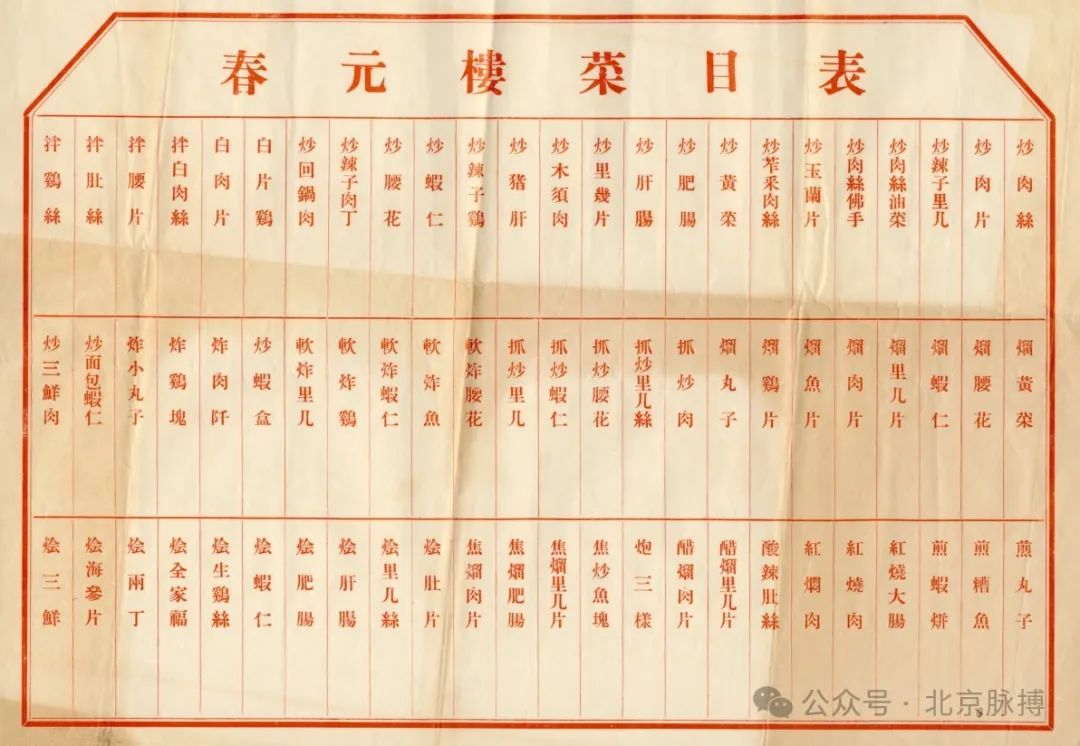 春元樓菜目表
炒肉絲
炒肉片
炒辣子里几
炒肉絲油菜
炒肉絲佛手
炒玉蘭片
炒苲釆肉絲
炒黃菜
炒肥腸
炒肝腸
炒里幾片
炒木須肉
炒猪肝
炒辣子鷄
炒蝦仁
炒腰花
炒辣子肉丁
炒回鍋肉
白片鷄
白肉片
拌白肉絲
拌腰片
拌肚絲
拌鷄絲
熘黃菜
熘腰花
熘蝦仁
熘里几片
熘肉片
熘魚片
熘鷄片
熘丸子
抓炒肉
抓炒里几絲
抓炒腰花
抓炒蝦仁
抓炒里几
軟炸腰花
軟炸魚
軟炸蝦仁
軟炸鷄
軟炸里几
炒蝦盒
炸肉阡
炸鷄塊
炸小丸子
炒面包蝦仁
炒三鮮肉
煎丸子
煎糟魚
煎蝦餅
紅燒大腸
紅燒肉
紅燜肉
酸辣肚絲
醋熘里几片
醋熘肉片
炮三樣
焦炒魚塊
焦熘里几片
焦熘肥腸
焦熘肉片
燴肚片
燴里几絲
燴肝腸
燴肥腸
燴蝦仁
燴生鷄絲
燴全家福
燴兩丁
燴海參片
燴三鮮
公众号·北京脉搏